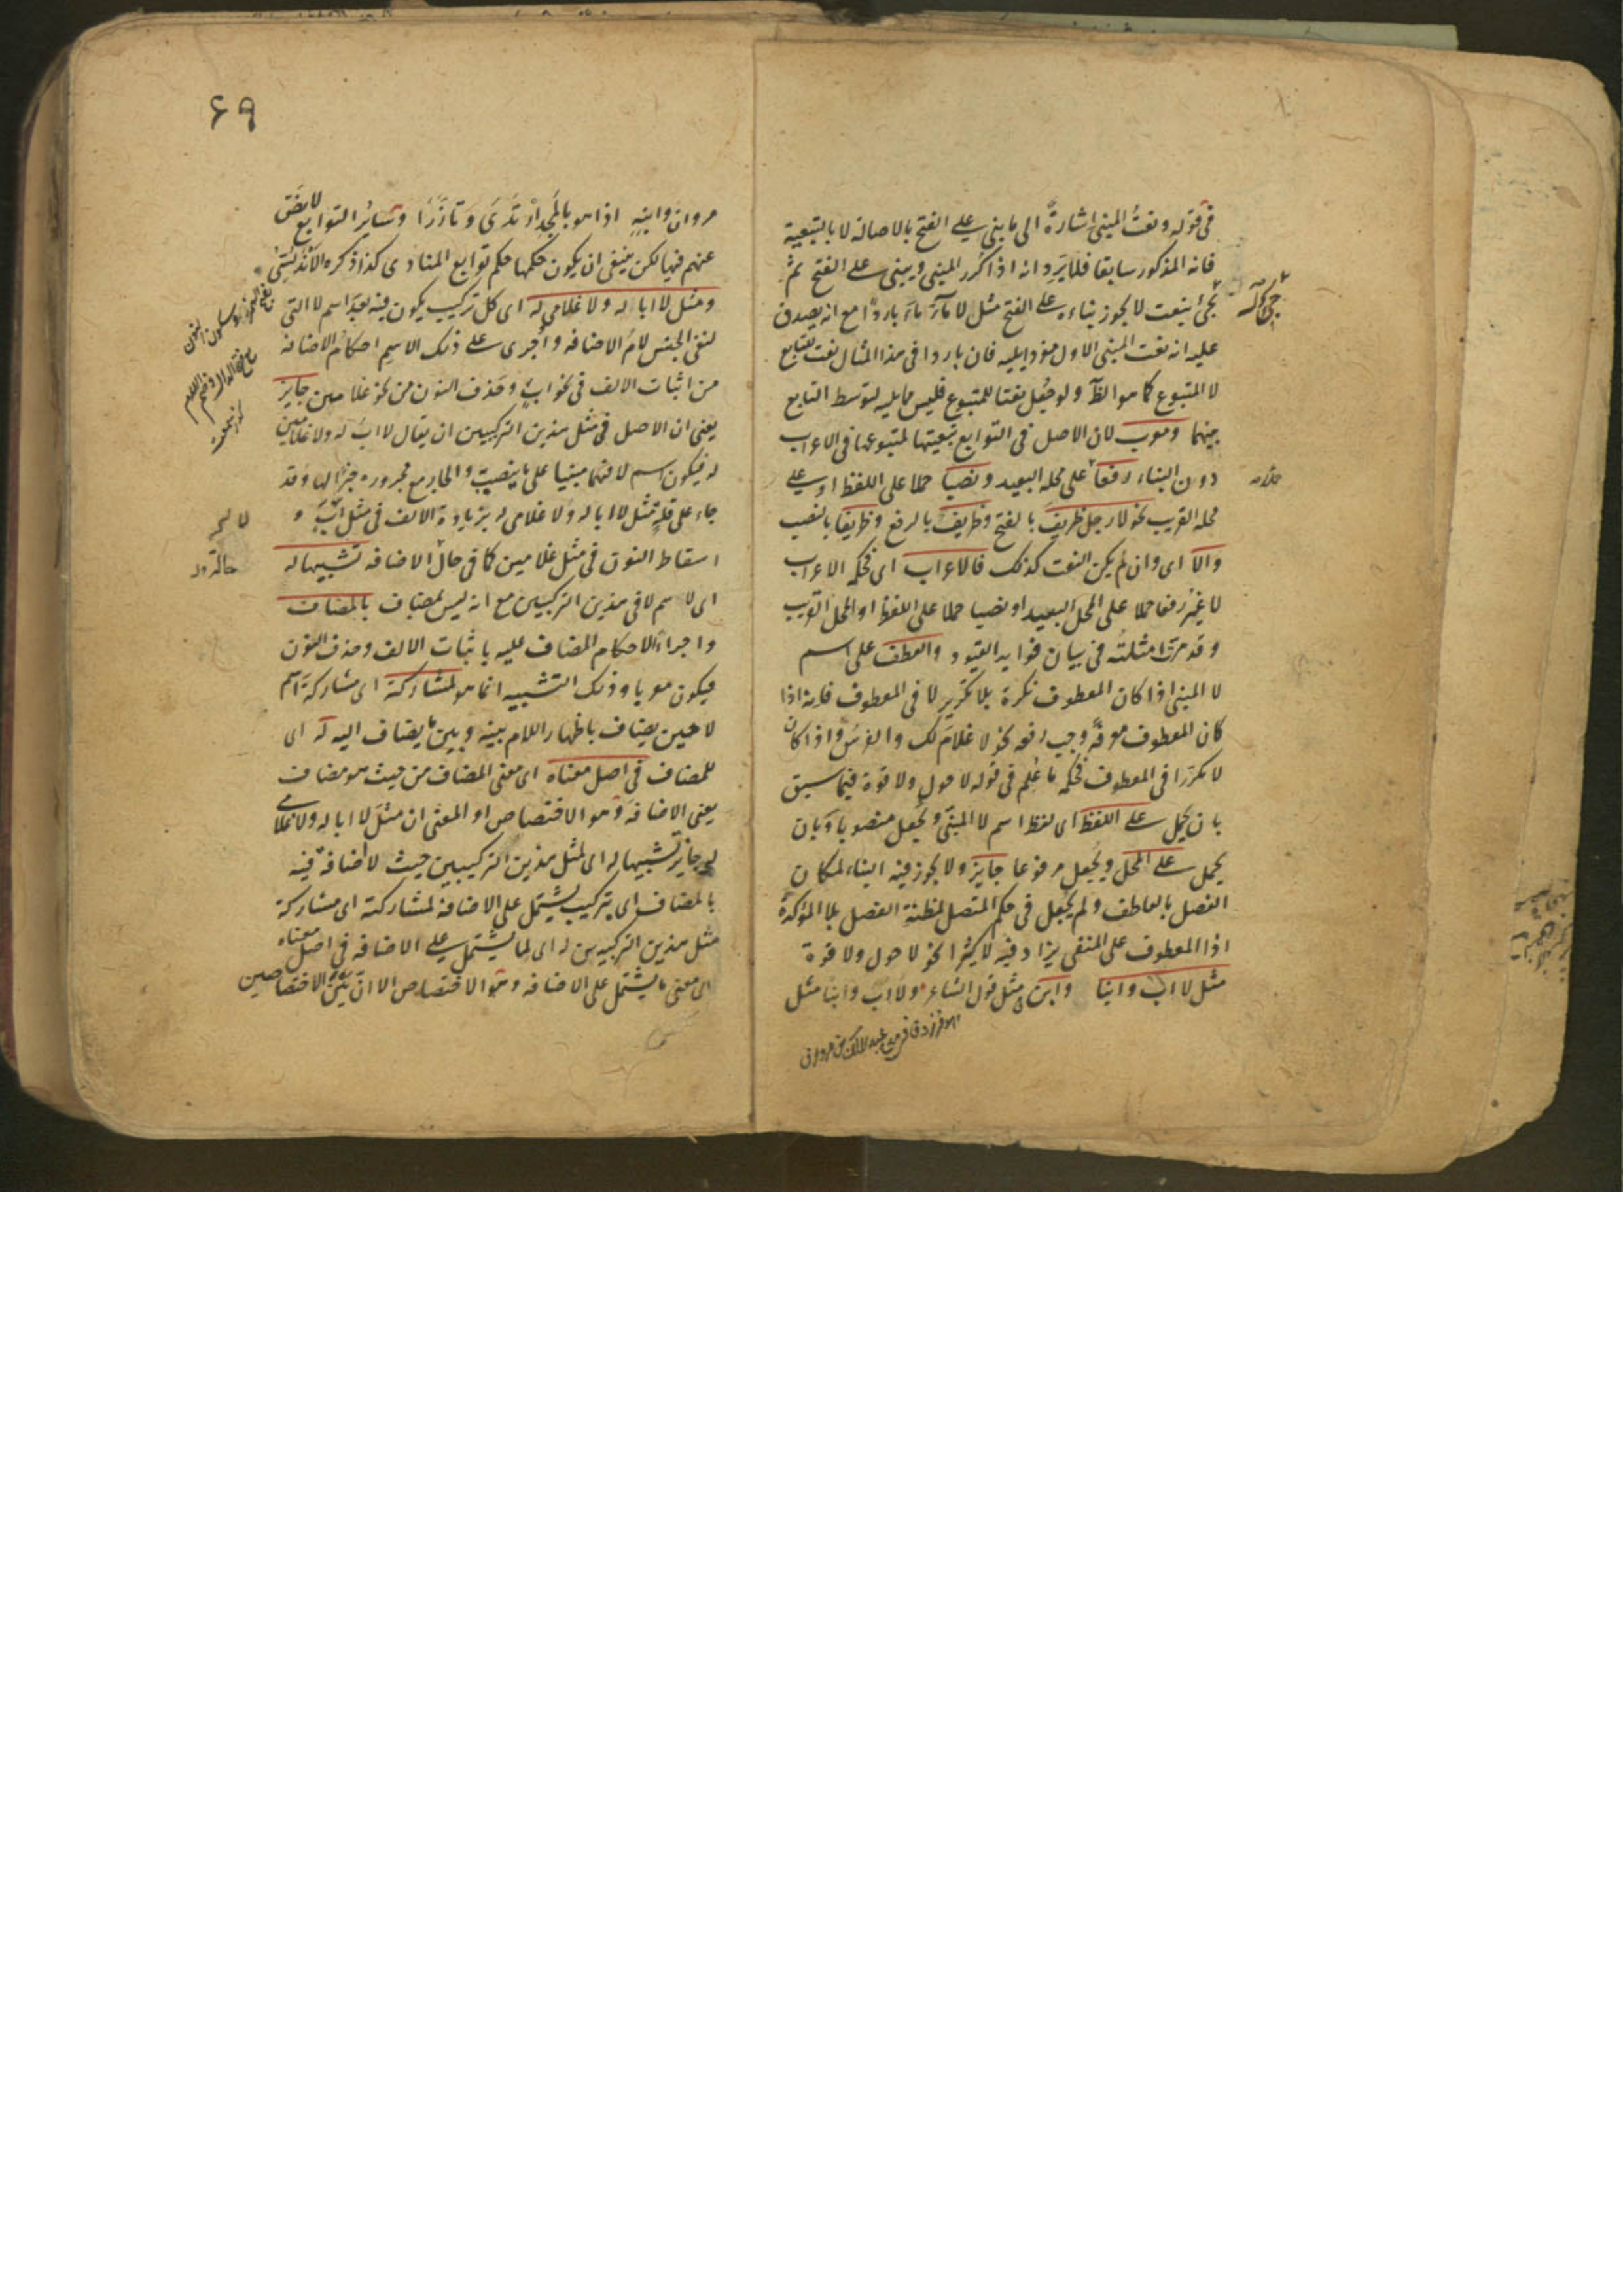 في قوله ونعت المبني اشارة الى ما بني على الفتح بالاصالة لا بالتبعية
فانه المذكور سابقا فلا يرد انه اذا كرر المبني وبني على الفتح ثم
جئ بنعت لا يجوز بناءه على الفتح مثل لا ماء ماء باردا مع انه يصدق
عليه انه نعت المبني الاول مفردا يليه فان باردا في هذا المثال نعت للتابع
لا المتبوع كما هو الظ ولو جعل نعتا للمتبوع فليس مما يليه لتوسط التابع
بينهما ومعرب لان الاصل في التوابع تبعيتها لمتبوعها في الاعراب
دون البناء رفعا على محله البعيد ونصبا حملا على اللفظ او على
محله القريب نحو لا رجل ظريف بالفتح وظريف بالرفع وظريفا بالنصب
والا اى وان لم يكن النعت كذلك فالاعراب اى فحكمه الاعراب
لا غير رفعا حملا على المحل البعيد او نصبا حملا على اللفظ او المحل القريب
وقد مرت امثلته في بيان فوايد القيود والعطف على اسم
لا المبني اذا كان المعطوف نكرة بلا تكرير لا في المعطوف فانه اذا
كان المعطوف معرفة وجب رفعه نحو لا غلام لك والفرس واذا كان
لا مكررا في المعطوف فحكمه ما علم في قوله لا حول ولا قوة فيما سبق
بان يحمل على اللفظ اى لفظ اسم لا المبني ويجعل منصوبا وبان
يحمل على المحل ويجعل مرفوعا جايز ولا يجوز فيه البناء لمكان
الفصل بالعاطف ولم يجعل في حكم المتصل لمظنة الفصل بلا المؤكدة
اذ المعطوف على المنفي يزاد فيه لا كثيرا نحو لا حول ولا قوة
مثل لا اب وابنا وابن مثل قول الشاعر ولا اب وابنا مثل
٦٩
مروان وابنه اذا هو بالمجد ارتدى وتأزرا وسائر التوابع لا نص
عنهم فيها لكن ينبغي ان يكون حكمها حكم توابع المنادى كذا ذكره الاندلسي
ومثل لا ابا له ولا غلامي له اى كل تركيب يكون فيه بعد اسم لا التي
لنفي الجنس لام الاضافة واجرى على ذلك الاسم احكام الاضافة
من اثبات الالف في نحو اب وحذف النون من نحو غلامين جايز
يعني ان الاصل في مثل هذين التركيبين ان يقال لا اب له ولا غلامين
له فيكون اسم لا فيهما مبنيا على ما ينصب به والجار مع مجروره خبرا لها وقد
جاء على قلة مثل لا ابا له ولا غلامي له بزيادة الالف في مثل اب و
اسقاط النون في مثل غلامين كما في حال الاضافة تشبيها له
اى لاسم لا في هذين التركيبين مع انه ليس بمضاف بالمضاف
واجراء لاحكام المضاف عليه باثبات الالف وحذف النون
فيكون معربا وذلك التشبيه انما هو لمشاركته اى مشاركة اسم
لا حين يضاف باظهار اللام بينه وبين ما يضاف اليه له اى
للمضاف في اصل معناه اى معنى المضاف من حيث هو مضاف
يعني الاضافة وهو الاختصاص او المعنى ان مثل لا ابا له ولا غلامي
له جايز تشبيها له اى لمثل هذين التركيبين حيث لا اضافة فيه
بالمضاف اى بتركيب يشتمل على الاضافة لمشاركته اى مشاركة
مثل هذين التركيبين له اى لما يشتمل على الاضافة في اصل معناه
اى معنى ما يشتمل على الاضافة وهو الاختصاص الا ان بين الاختصاصين